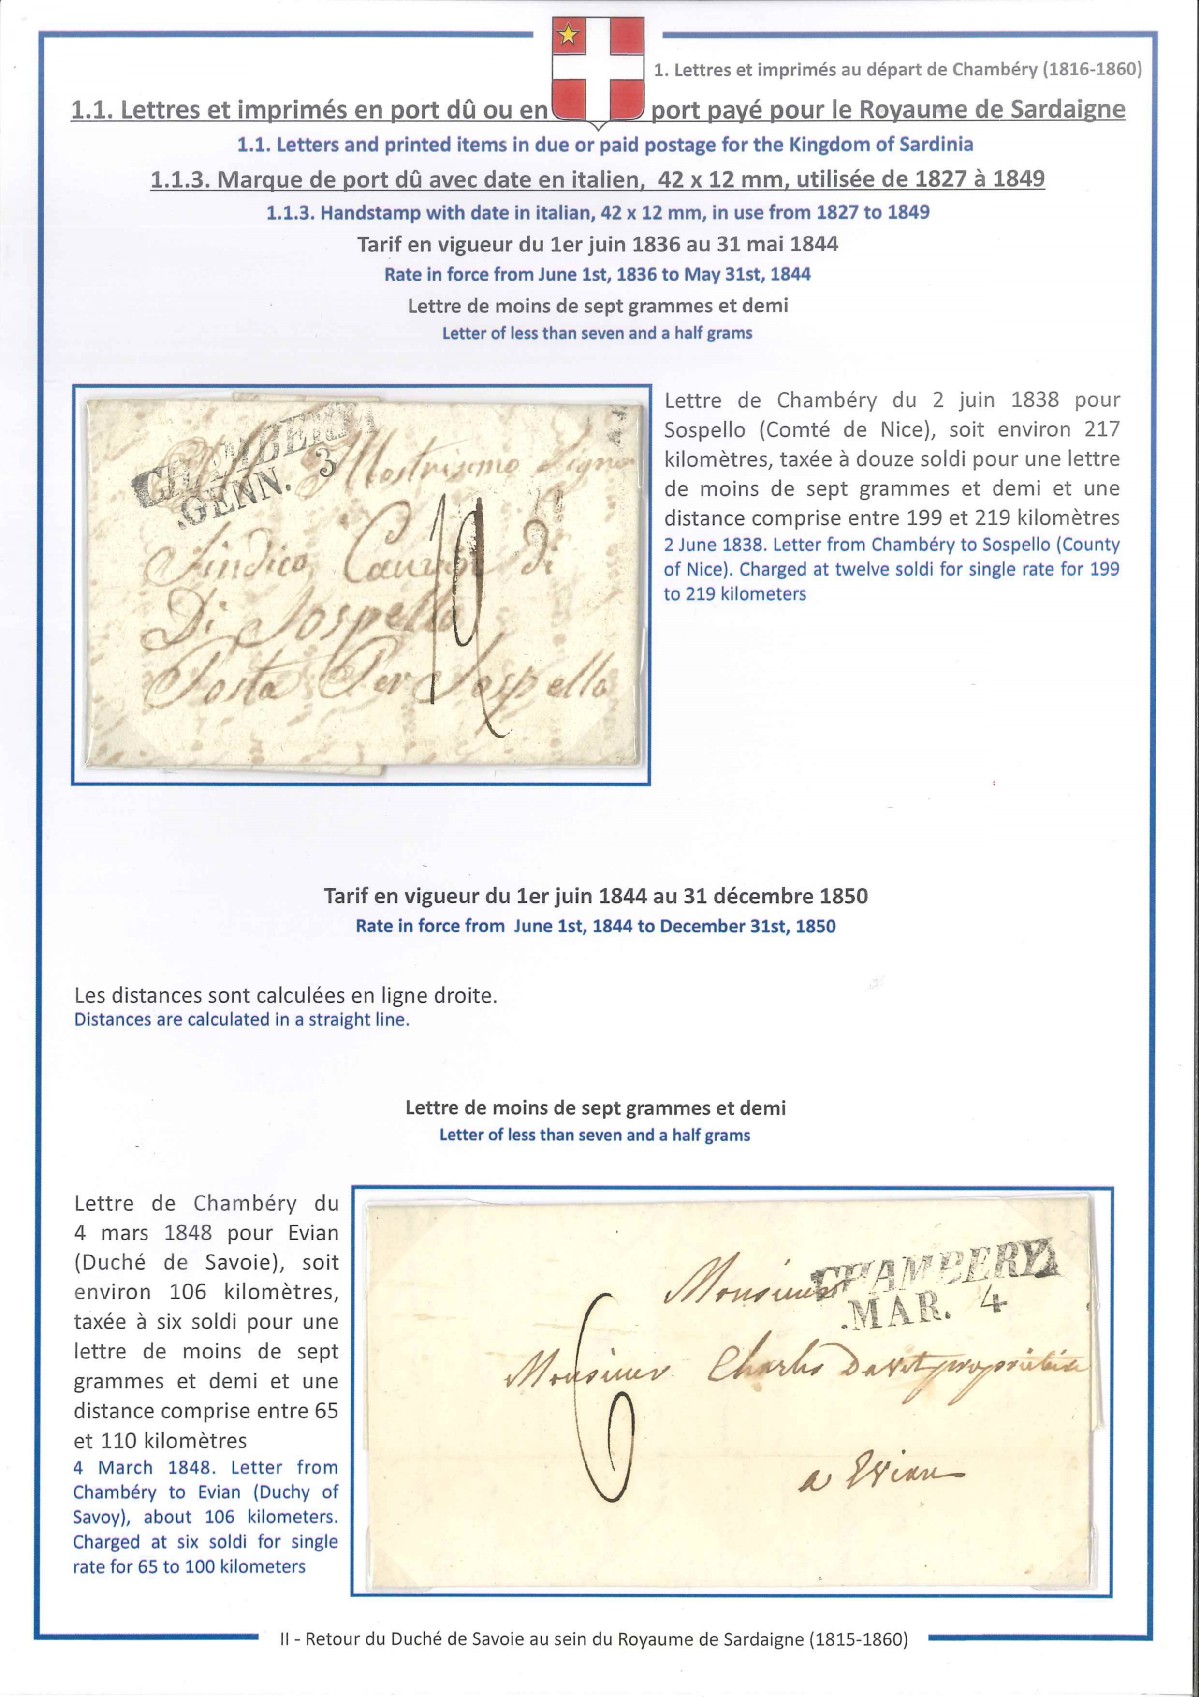 1. Lettres et imprimés au départ de Chambéry (1816-1860)
1.1. Lettres et imprimés en port dû ou en port payé pour le Royaume de Sardaigne
1.1. Letters and printed items in due or paid postage for the Kingdom of Sardinia
1.1.3. Marque de port dû avec date en italien, 42 x 12 mm, utilisée de 1827 à 1849
1.1.3. Handstamp with date in italian, 42 x 12 mm, in use from 1827 to 1849
Tarif en vigueur du 1er juin 1836 au 31 mai 1844
Rate in force from June 1st, 1836 to May 31st, 1844
Lettre de moins de sept grammes et demi
Letter of less than seven and a half grams
CHAMBERY
GENN. 3
Sindico di
Di Sospello
Posta Per Sospello
12
Lettre de Chambéry du 2 juin 1838 pour
Sospello (Comté de Nice), soit environ 217
kilomètres, taxée à douze soldi pour une lettre
de moins de sept grammes et demi et une
distance comprise entre 199 et 219 kilomètres
2 June 1838. Letter from Chambéry to Sospello (County
of Nice). Charged at twelve soldi for single rate for 199
to 219 kilometers
Tarif en vigueur du 1er juin 1844 au 31 décembre 1850
Rate in force from June 1st, 1844 to December 31st, 1850
Les distances sont calculées en ligne droite.
Distances are calculated in a straight line.
Lettre de moins de sept grammes et demi
Letter of less than seven and a half grams
Lettre de Chambéry du
4 mars 1848 pour Evian
(Duché de Savoie), soit
environ 106 kilomètres,
taxée à six soldi pour une
lettre de moins de sept
grammes et demi et une
distance comprise entre 65
et 110 kilomètres
4 March 1848. Letter from
Chambéry to Evian (Duchy of
Savoy), about 106 kilometers.
Charged at six soldi for single
rate for 65 to 100 kilometers
CHAMBERY
.MAR. 4
Monsieur
Monsieur Charles Davet propriétaire
a Evian
6
II - Retour du Duché de Savoie au sein du Royaume de Sardaigne (1815-1860)